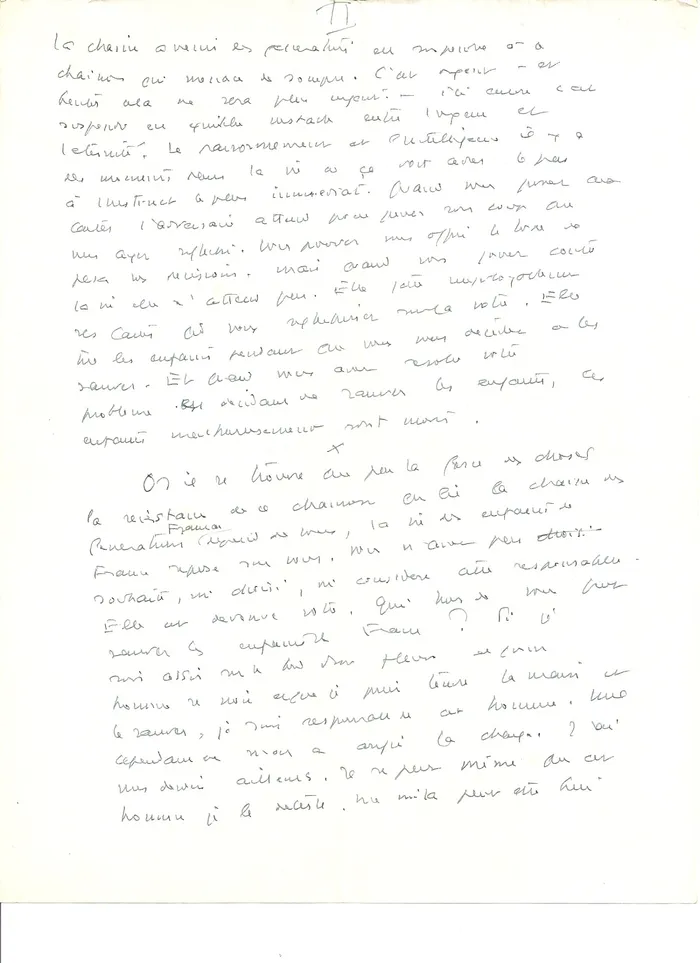 II
La chaîne a venir des générations est suspendue à un
chaînon qui menace de rompre. C'est urgent - et
bientôt cela ne sera plus urgent. -
suspendu en équilibre instable entre l'urgence et
l'éternité. Le raisonnement et l'intelligence il y a
des moments dans la vie où ça doit céder le pas
à l'instinct le plus immédiat. Quand vous jouez aux
cartes l'adversaire attend pour jouer son coup que
vous ayez réfléchi. Vous pouvez vous offrir le luxe de
peser vos décisions. Mais quand vous jouez contre
la vie elle n'attend pas. Elle jette
ses cartes vous réfléchissiez sur la vôtre. Elle
tue les enfants pendant que vous vous décidez à les
sauver. Et quand vous avez résolu votre
problème décidant de sauver les enfants, ces
enfants malheureusement sont morts.
x
Or il se trouve que par la force des choses
la résistance de ce chaînon où se lie la chaîne des
générations Françai de la vie des enfants de
France repose sur vous. Vous n'avez pas choisi
souhaité, ni désiré, ni considéré cette responsabilité.
Elle est devenue vôtre. Qui hors de vous peut
sauver les enfants de France ? Si je
suis assis sur le bord d'un fleuve et qu'un
homme se noie auquel je puis tendre la main et
le sauver, je suis responsable de cet homme.
cependant ne m'en a confié la charge. J'ai
mes devoirs ailleurs. Il se peut même que cet
homme je le déteste.